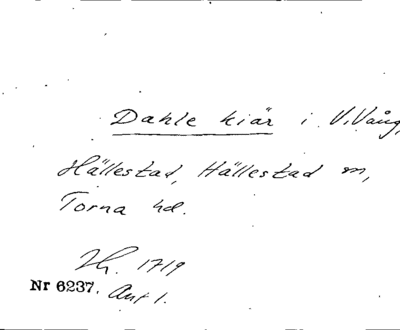 Dahle kiär i V. Vång,
Hällestad, Hällestad m,
Torna hd.
Zh. 1719
Nr 6237. Anf 1.